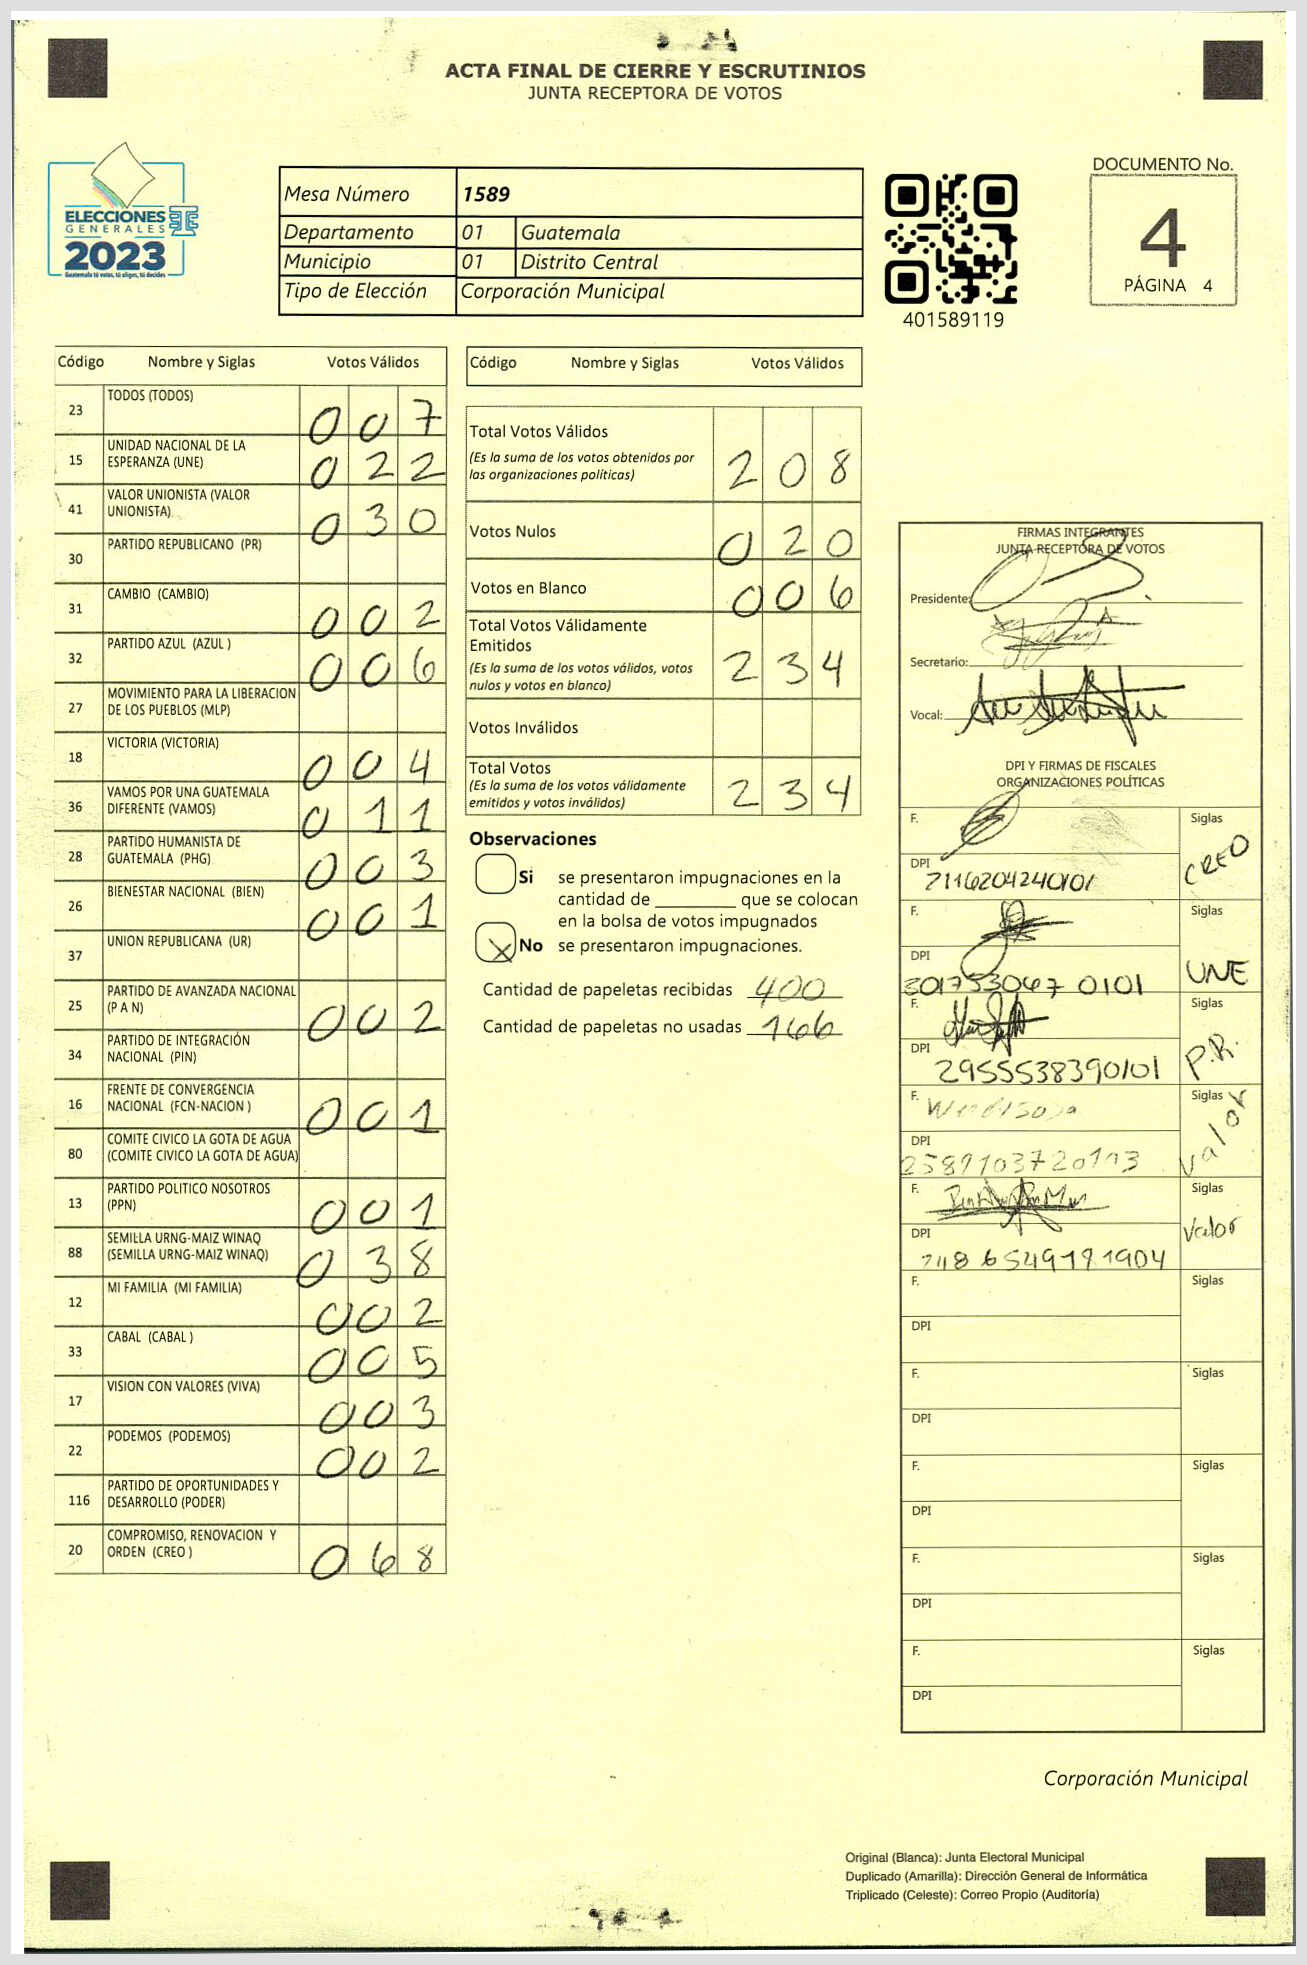 ACTA FINAL DE CIERRE Y ESCRUTINIOS
JUNTA RECEPTORA DE VOTOS
ELECCIONES
GENERALES
2023
Guatemala tú votas, tú eliges, tú decides
Mesa Número 1589
Departamento 01 Guatemala
Municipio 01 Distrito Central
Tipo de Elección Corporación Municipal
401589119
DOCUMENTO No.
4
PÁGINA 4
Código Nombre y Siglas Votos Válidos
23 TODOS (TODOS) 007
15 UNIDAD NACIONAL DE LA
ESPERANZA (UNE) 022
41 VALOR UNIONISTA (VALOR
UNIONISTA) 030
30 PARTIDO REPUBLICANO (PR)
31 CAMBIO (CAMBIO) 002
32 PARTIDO AZUL (AZUL ) 006
27 MOVIMIENTO PARA LA LIBERACION
DE LOS PUEBLOS (MLP)
18 VICTORIA (VICTORIA) 004
36 VAMOS POR UNA GUATEMALA
DIFERENTE (VAMOS) 011
28 PARTIDO HUMANISTA DE
GUATEMALA (PHG) 003
26 BIENESTAR NACIONAL (BIEN) 001
37 UNION REPUBLICANA (UR)
25 PARTIDO DE AVANZADA NACIONAL
(P A N) 002
34 PARTIDO DE INTEGRACIÓN
NACIONAL (PIN)
16 FRENTE DE CONVERGENCIA
NACIONAL (FCN-NACION ) 001
80 COMITE CIVICO LA GOTA DE AGUA
(COMITE CIVICO LA GOTA DE AGUA)
13 PARTIDO POLITICO NOSOTROS
(PPN) 001
88 SEMILLA URNG-MAIZ WINAQ
(SEMILLA URNG-MAIZ WINAQ) 038
12 MI FAMILIA (MI FAMILIA) 002
33 CABAL (CABAL ) 005
17 VISION CON VALORES (VIVA) 003
22 PODEMOS (PODEMOS) 002
116 PARTIDO DE OPORTUNIDADES Y
DESARROLLO (PODER)
20 COMPROMISO, RENOVACION Y
ORDEN (CREO ) 068
Código Nombre y Siglas Votos Válidos
Total Votos Válidos
(Es la suma de los votos obtenidos por
las organizaciones políticas) 208
Votos Nulos 020
Votos en Blanco 006
Total Votos Válidamente
Emitidos
(Es la suma de los votos válidos, votos
nulos y votos en blanco) 234
Votos Inválidos
Total Votos
(Es la suma de los votos válidamente
emitidos y votos inválidos) 234
Observaciones
Si se presentaron impugnaciones en la
cantidad de ________ que se colocan
en la bolsa de votos impugnados
X No se presentaron impugnaciones.
Cantidad de papeletas recibidas 400
Cantidad de papeletas no usadas 166
FIRMAS INTEGRANTES
JUNTA RECEPTORA DE VOTOS
Presidente:
Secretario:
Vocal:
DPI Y FIRMAS DE FISCALES
ORGANIZACIONES POLÍTICAS
F. Siglas
DPI 2116204240101 CREO
F. Siglas
DPI 3017530670101 UNE
F. Siglas
DPI 2955538390101 P.R.
F. Siglas
DPI valor
F. Siglas
DPI valor
F. Siglas
DPI
F. Siglas
DPI
F. Siglas
DPI
F. Siglas
DPI
F. Siglas
DPI
Corporación Municipal
Original (Blanca): Junta Electoral Municipal
Duplicado (Amarilla): Dirección General de Informática
Triplicado (Celeste): Correo Propio (Auditoría)